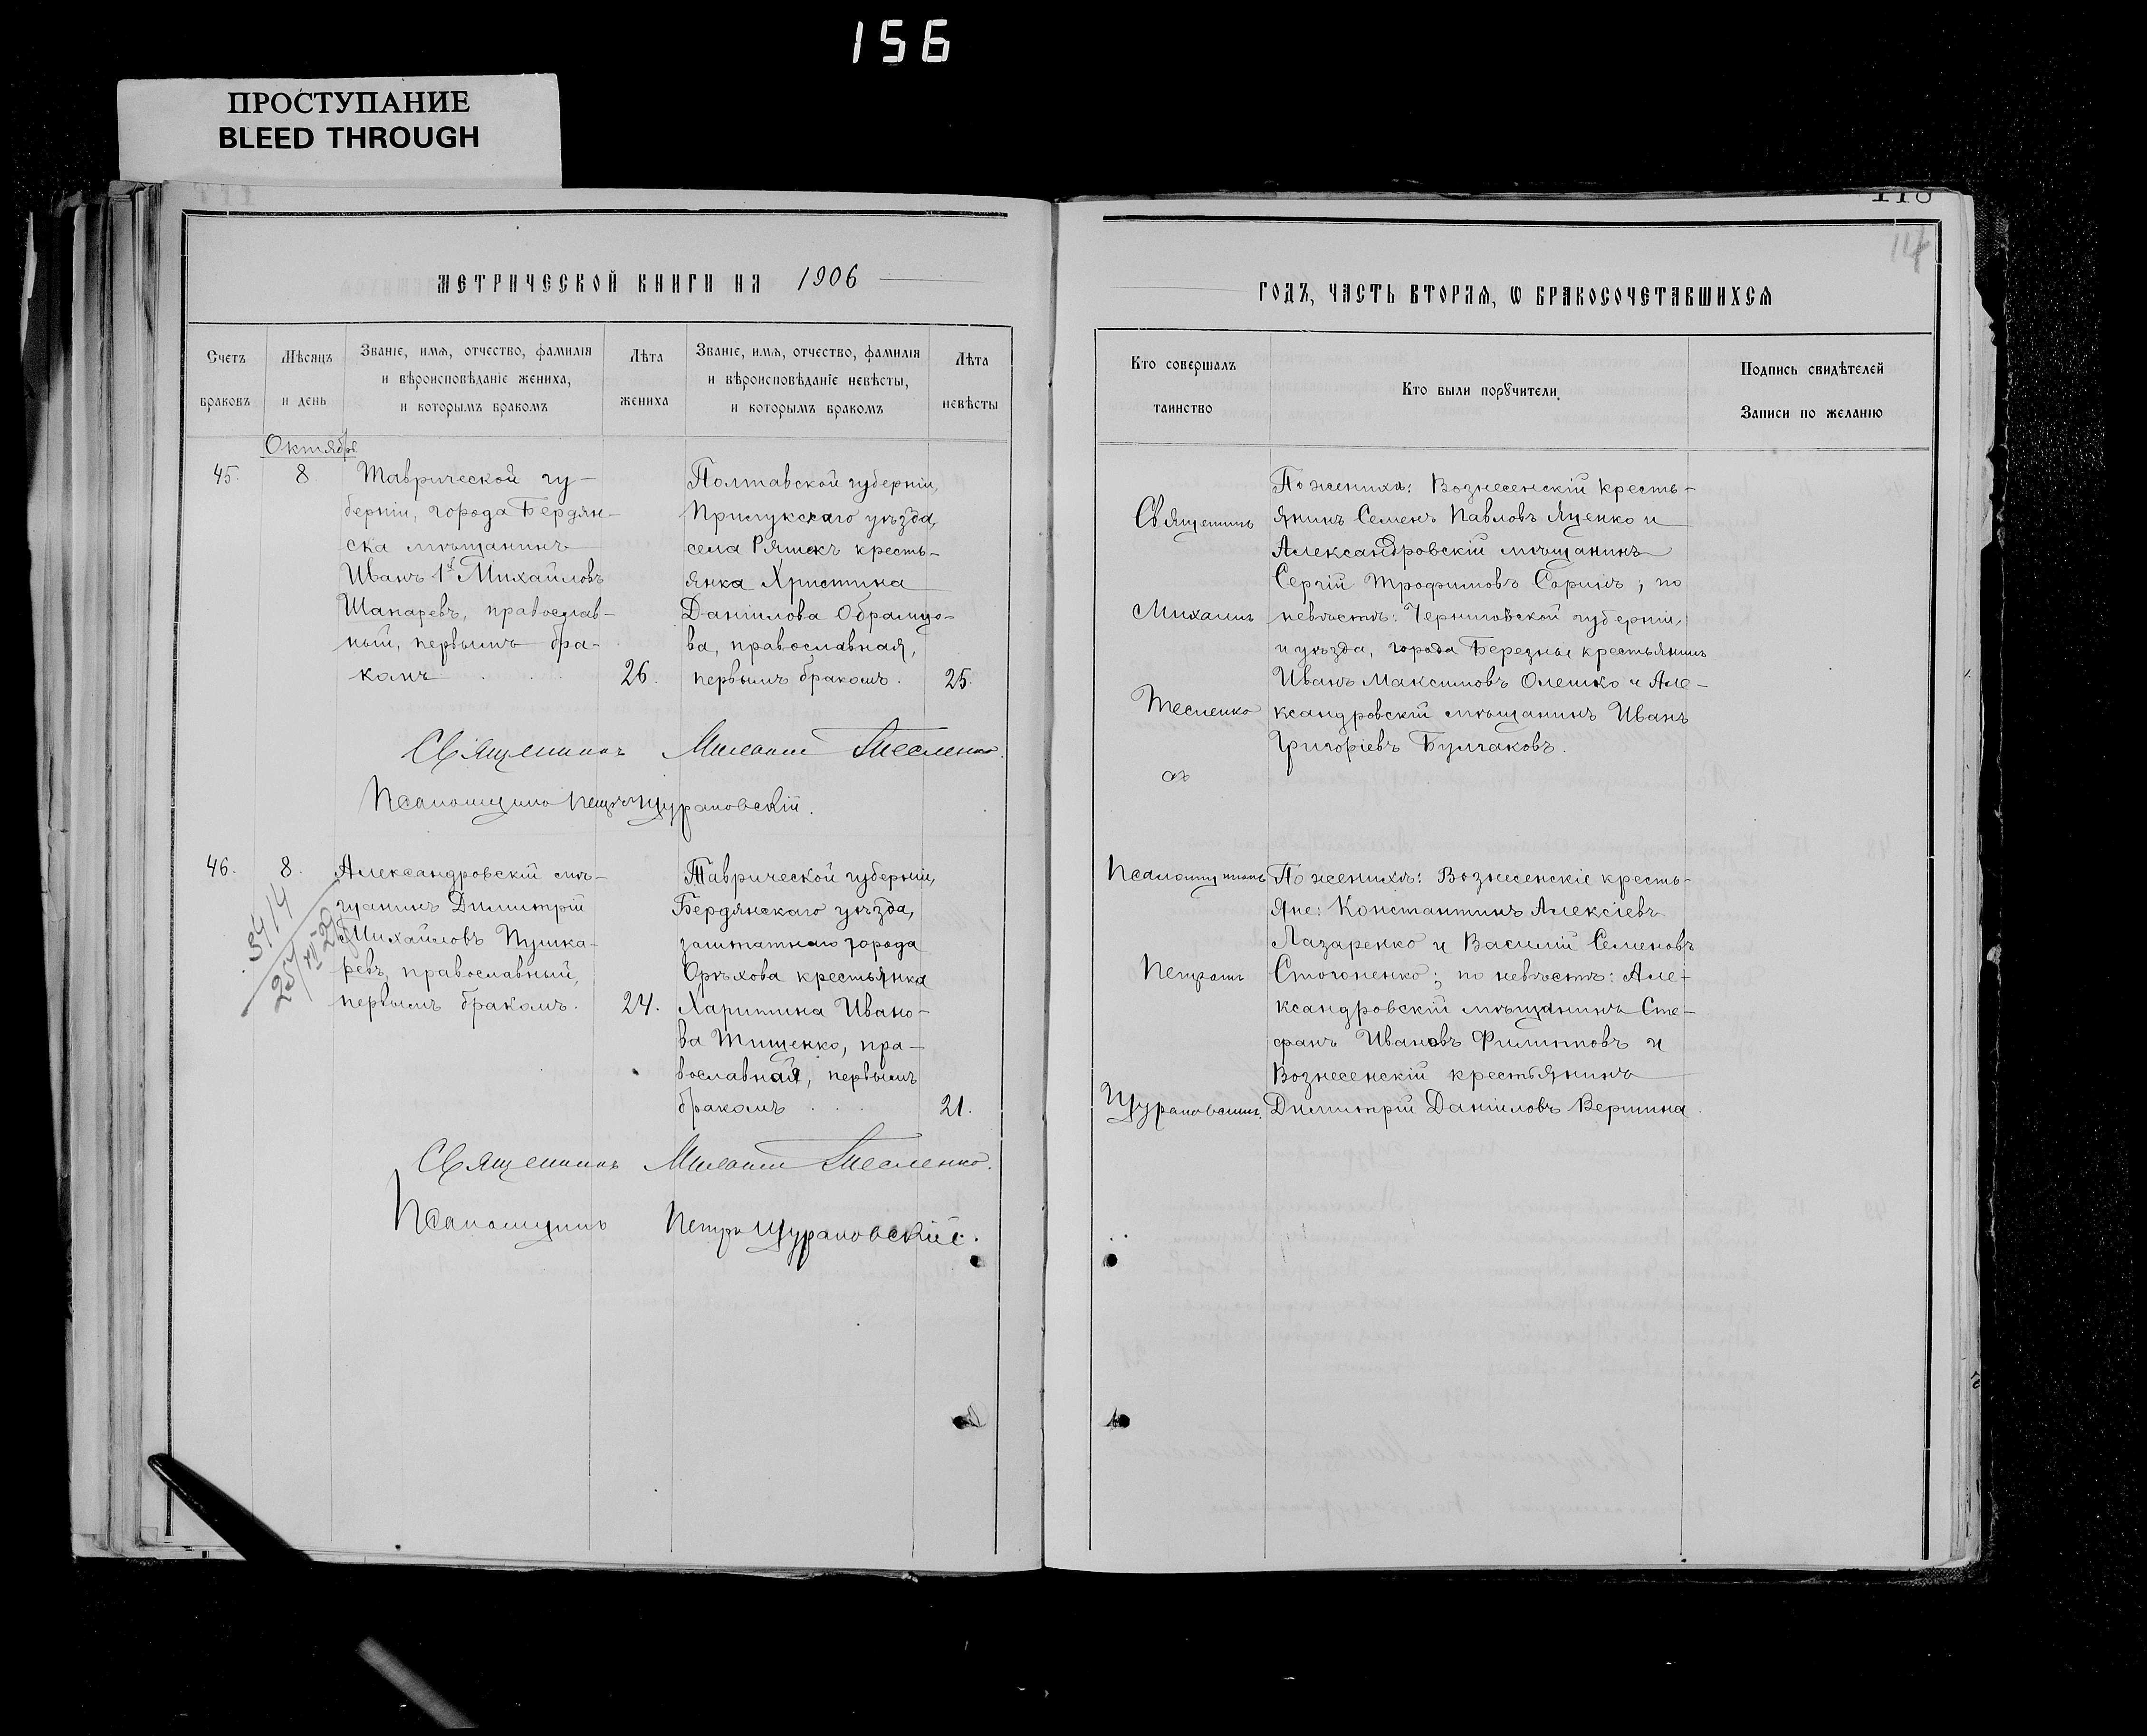 156
ПРОСТУПАНИЕ
BLEED THROUGH
МЕТРИЧЕСКОЙ КНИГИ НА 1906
Счетъ браковъ
Мѣсяцъ и день
Званіе, имя, отчество, фамилія
и вѣроисповѣданіе жениха,
и которымъ бракомъ
Лѣта жениха
Званіе, имя, отчество, фамилія
и вѣроисповѣданіе невѣсты,
и которымъ бракомъ
Лѣта невѣсты
Октябрь
45. 8.
Таврической гу-
берніи, города Бердян-
ска мѣщанинъ
Иванъ 1й Михайловъ
Шапаревъ, православ-
ный, первымъ бра-
комъ 26.
Полтавской губерніи,
Прилукскаго уѣзда,
села Ряшекъ кресть-
янка Христина
Даніилова Обрамцо-
ва, православная,
первымъ бракомъ. 25.
Священникъ Михаилъ Тесленко.
Псаломщикъ Петръ Щурановскій.
46. 8.
3414
25/VI-29
Александровскій мѣ-
щанинъ Димитрій
Михайловъ Пушка-
ревъ, православный,
первымъ бракомъ. 24.
Таврической губерніи,
Бердянскаго уѣзда,
заштатнаго города
Орѣхова крестьянка
Харитина Ивано-
ва Тищенко, пра-
вославная, первымъ
бракомъ 21.
Священникъ Михаилъ Тесленко.
Псаломщикъ Петръ Щурановскій.
118
114
ГОДЪ, ЧАСТЬ ВТОРАЯ, Ѡ БРАКОСОЧЕТАВШИХСЯ
Кто совершалъ таинство
Кто были порꙋчители
Подпись свидѣтелей
Записи по желанію
Священникъ
Михаилъ
Тесленко
съ
Псаломщикомъ
Петромъ
Щурановскимъ.
По женихѣ: Вознесенскій кресть-
янинъ Семенъ Павловъ Яценко и
Александровскій мѣщанинъ
Сергій Трофимовъ Соринъ; по
невѣстѣ: Черниговской губерніи,
и уѣзда, города Березны крестьянинъ
Иванъ Максимовъ Олешко и Але-
ксандровскій мѣщанинъ Иванъ
Григоріевъ Булгаковъ.
По женихѣ: Вознесенскіе кресть-
яне: Константинъ Алексіевъ
Лазаренко и Василій Семеновъ
Стогоненко; по невѣстѣ: Але-
ксандровскій мѣщанинъ Сте-
фанъ Ивановъ Филиповъ и
Вознесенскій крестьянинъ
Димитрій Даніиловъ Вершина.